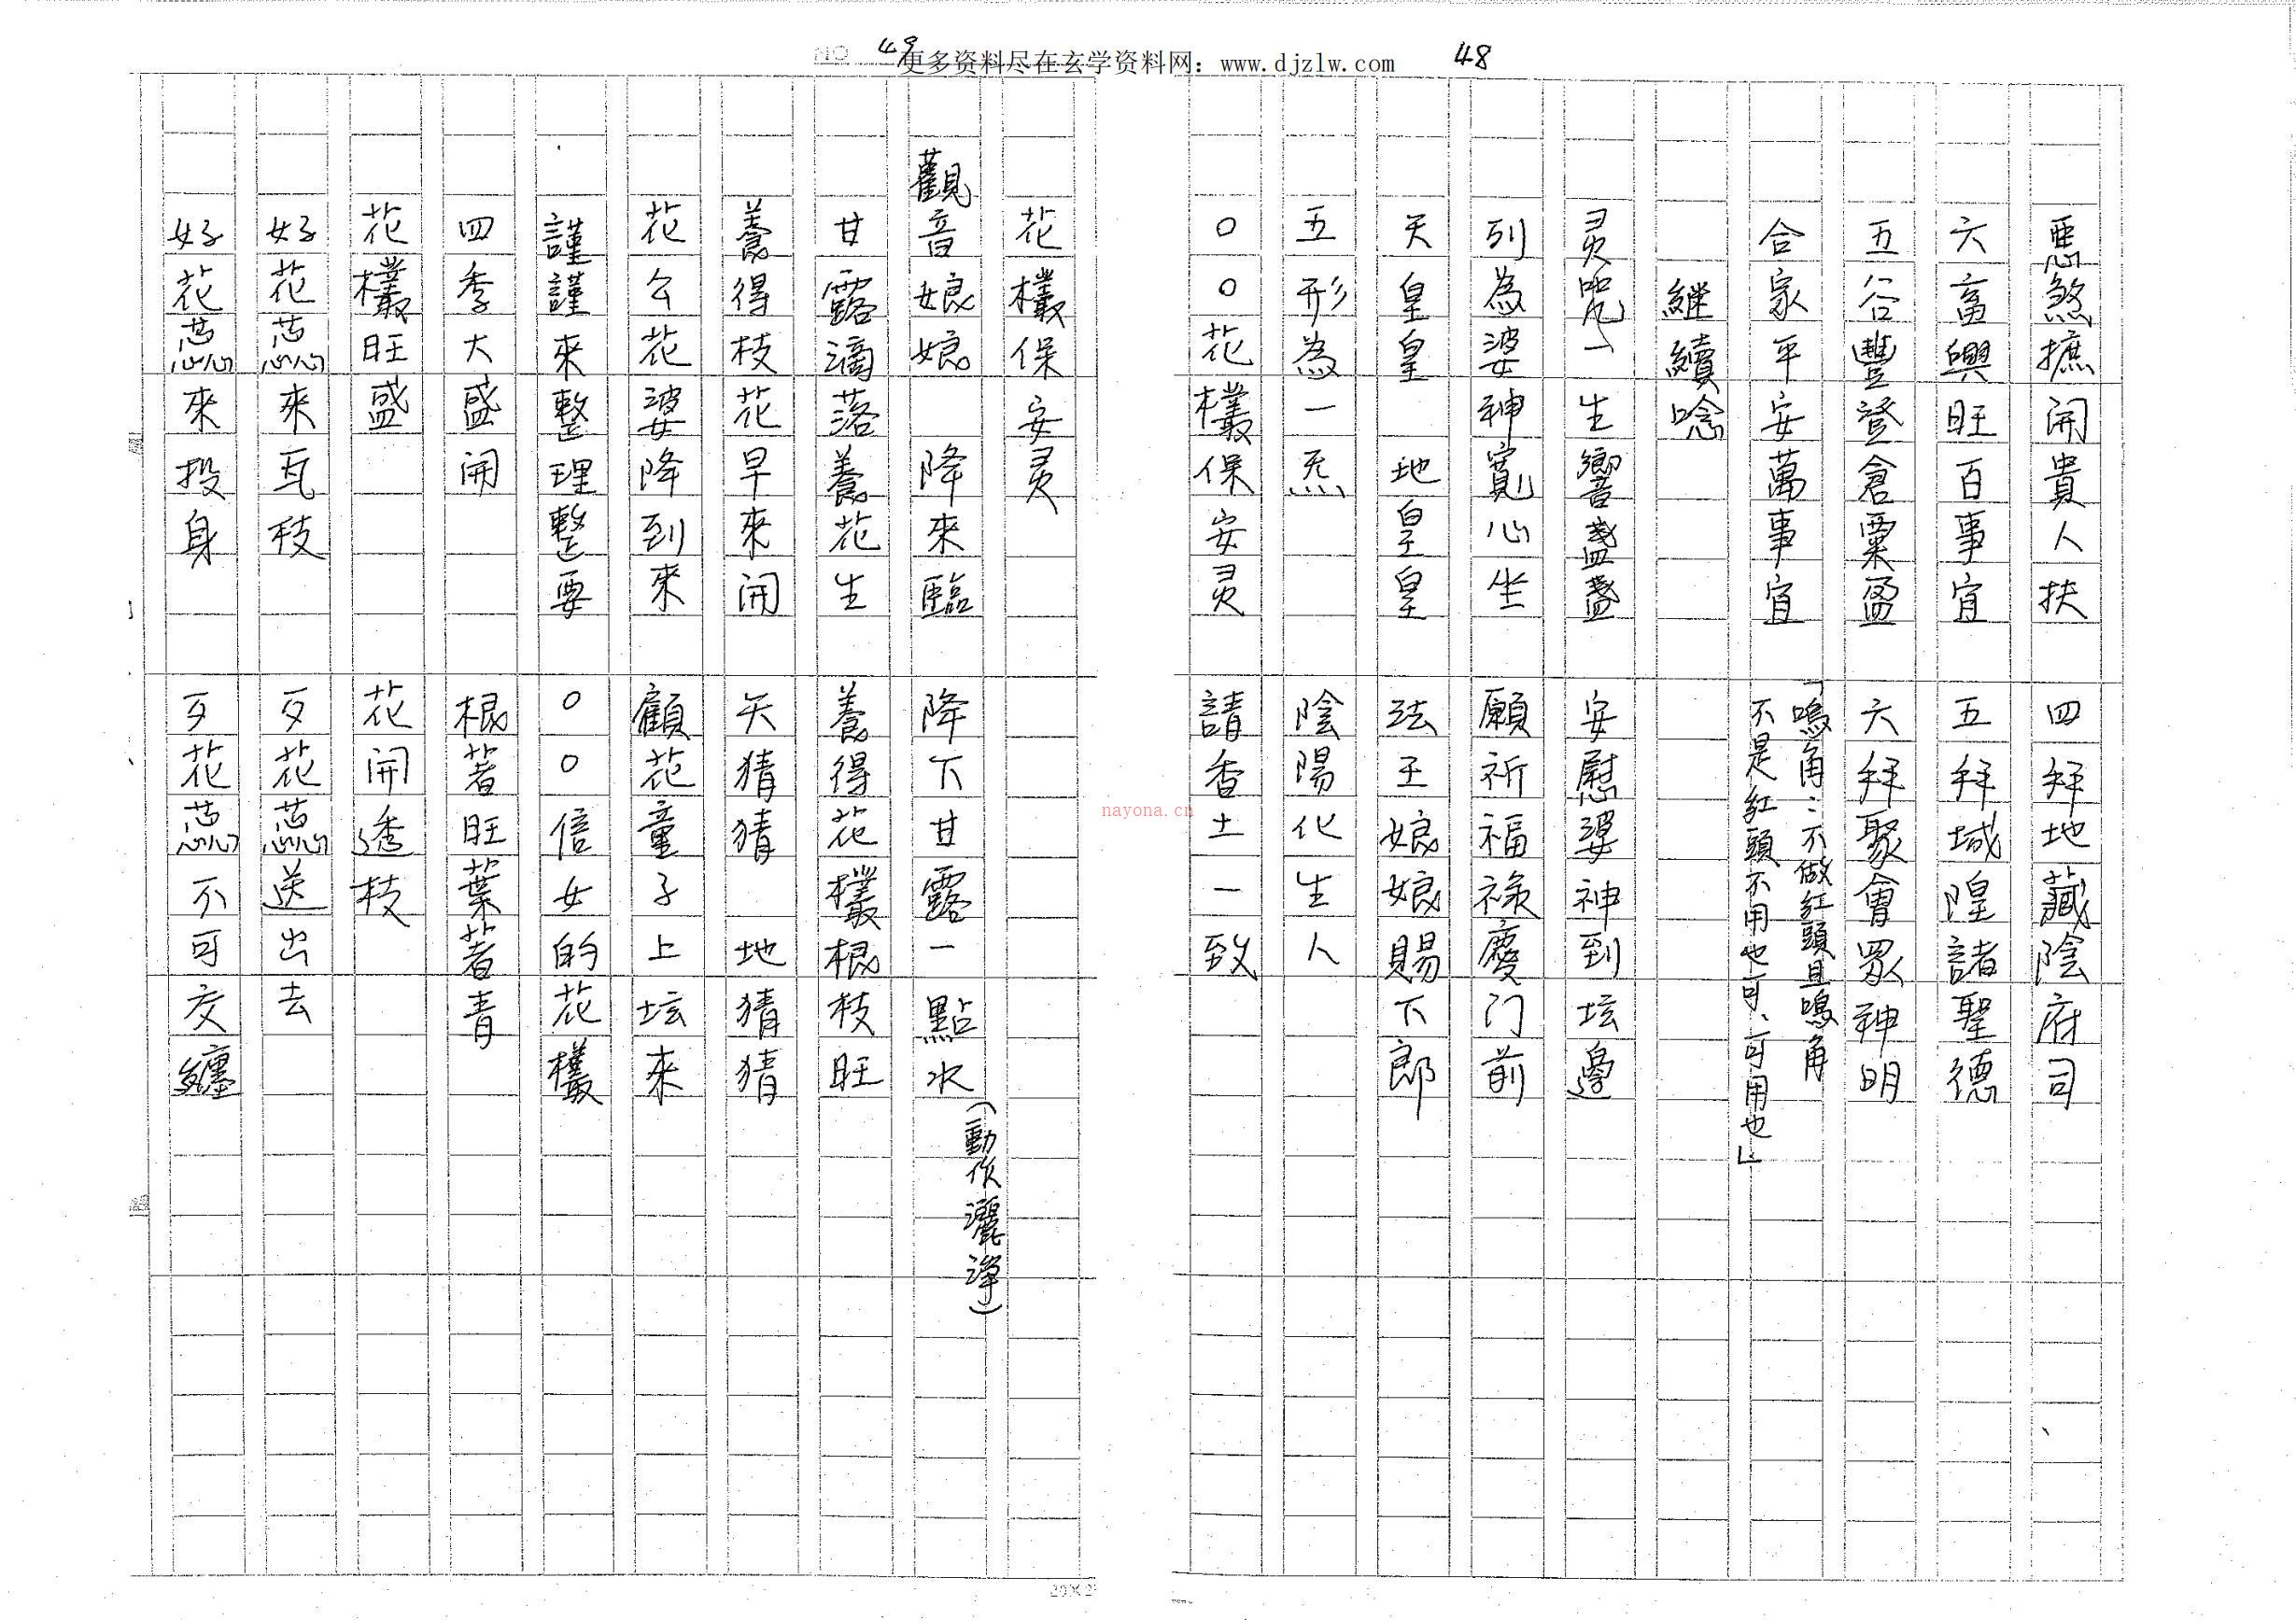 更多资料尽在玄学资料网：www.djzlw.com
48
惡煞摭開貴人扶 四拜地藏陰府司
六畜興旺百事宜 五拜城隍諸聖德
五谷豐登倉粟盈 六拜聚會眾神明
合家平安萬事宜
「鳴角：不做紅頭且鳴角
不是紅頭不用也可、可用也」
継續唸
灵咒一生響盞盞 安慰婆神到坛邊
列為婆神寬心坐 願祈福祿慶门前
天皇皇 地皇皇 法王娘娘賜下郎
五形為一炁 陰陽化生人
○○花欉保安灵 請香土一致
NO 49
花欉保安灵
觀音娘娘 降來臨 降下甘露一點水
(動作灑淨)
甘露滴落養花生 養得花欉根枝旺
養得枝花早來開 天猜猜 地猜猜
花公花婆降到來 顧花童子上坛來
謹謹來整理整要 ○○信女的花欉
四季大盛開 根著旺葉著青
花欉旺盛 花開透枝
好花蕊來瓦枝 歹花蕊送出去
好花蕊來投身 歹花蕊不可交纏
nayona.cn